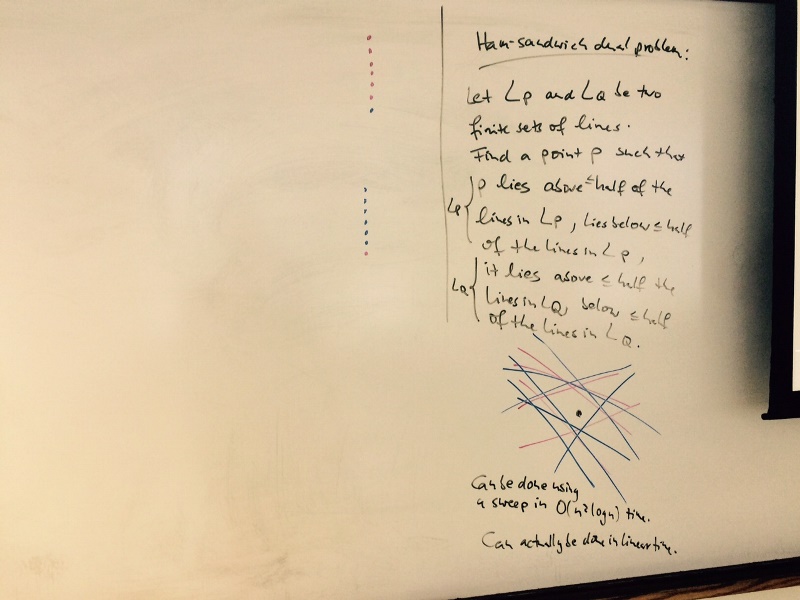 Ham-sandwich dual problem:
Let LP and LQ be two
finite sets of lines.
Find a point p such that
p lies above ≤ half of the
LP { lines in LP, lies below ≤ half
of the lines in LP,
it lies above ≤ half the
LQ { lines in LQ, below ≤ half
of the lines in LQ.
Can be done using
a sweep in O(n² log n) time.
Can actually be done in linear time.